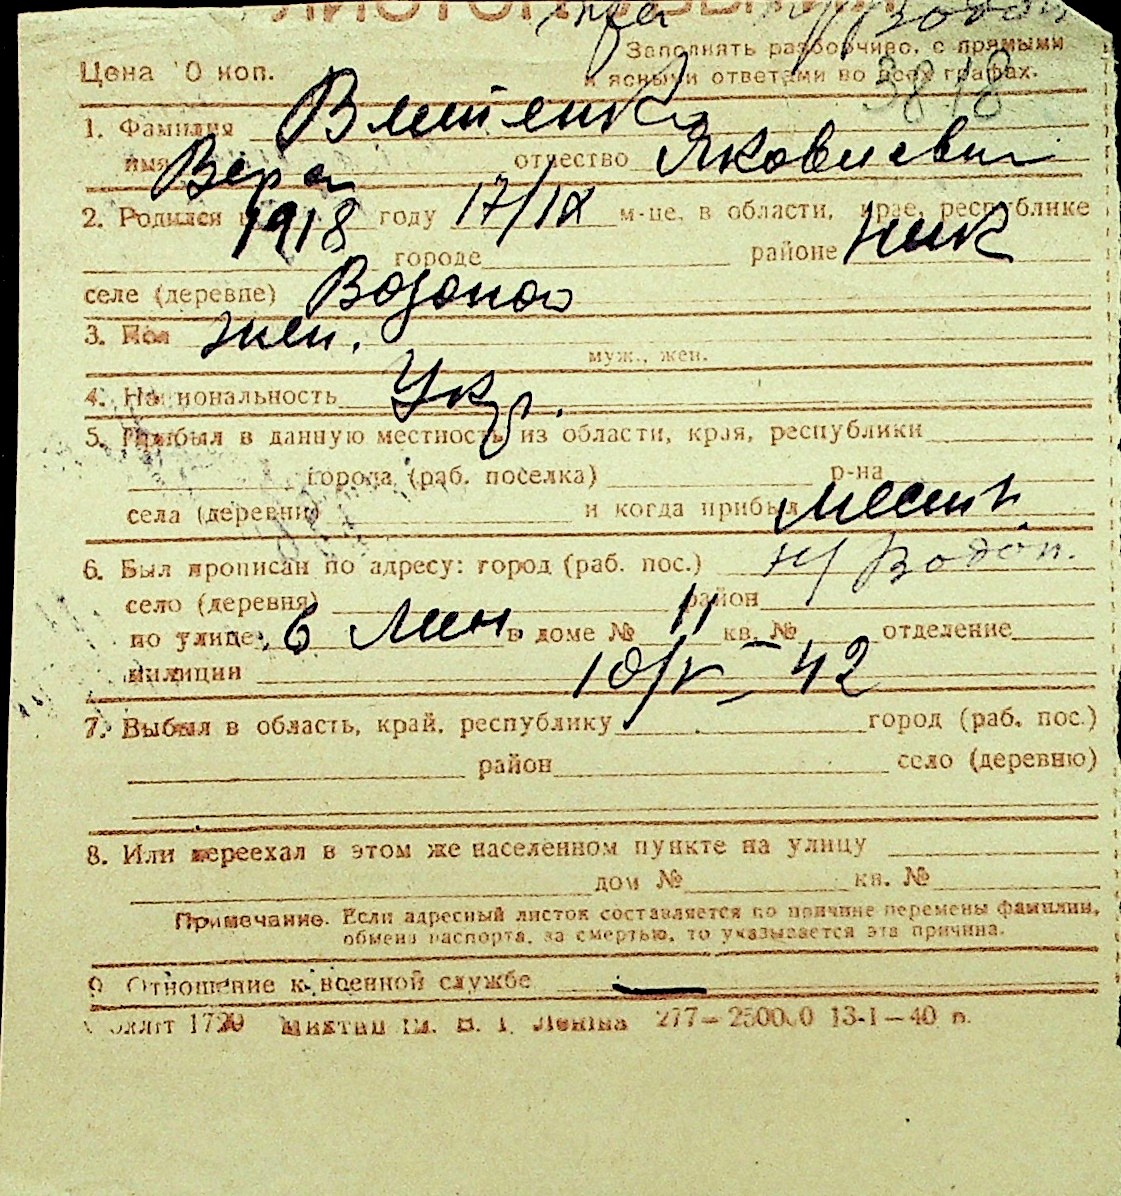 Водоп
Заполнять разборчиво, с прямыми
Цена 10 коп.
и ясными ответами во всех графах.
3818
1. Фамилия
имя Вера отчество Яковлевна
2. Родился в 1918 году 17/IX м-це, в области, крае, республике
городе районе Ник
селе (деревне) Водопой
3. Пол жен.
муж., жен.
4. Национальность Укр.
5. Прибыл в данную местность из области, края, республики
города (раб. поселка) р-на
села (деревни) и когда прибыл местн.
6. Был прописан по адресу: город (раб. пос.) Н/Водоп.
село (деревня) район
по улице 6 Лин в доме № 11 кв. № — отделение
милиции 10/V — 42
7. Выбыл в область, край, республику город (раб. пос.)
район село (деревню)
8. Или переехал в этом же населенном пункте на улицу
дом № кв. №
Примечание. Если адресный листок составляется по причине перемены фамилии,
обмена паспорта, за смертью, то указывается эта причина.
9 Отношение к военной службе —
277—250000 13-I—40 п.